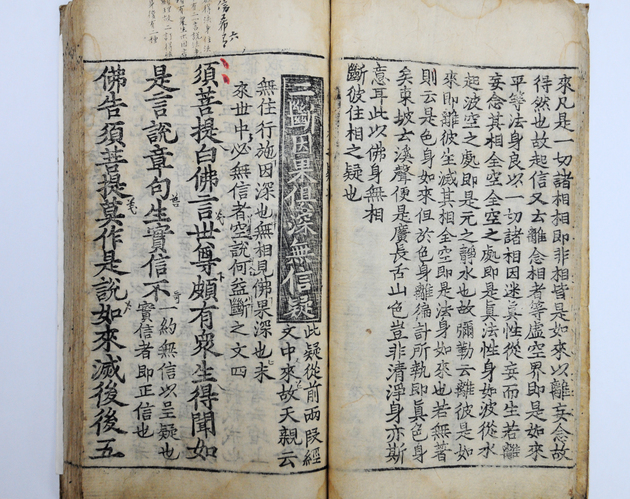 來凡是一切諸相相即非相皆是如來以離妄念故
得然也故起信又云離念相者等虛空界即是如來
平等法身良以一切諸相因迷眞性從妄而生若離
妄念其相全空全空之處即是眞法性身如波從水
起波空之處即是元之靜水也故彌勒云離彼是如
來即離彼生滅其相全空即是法身如來也若無著
則云是色身如來但於色身離徧計所執即眞色身
矣東坡云溪聲便是廣長舌山色豈非清淨身亦斯
意耳此以佛身無相
斷彼住相之疑也
二斷因果俱深無信疑
此疑從前兩段經
文中來故天親云
無住行施因深也無相見佛果深也未
來世中必無信者空說何益斷之文四
須菩提白佛言世尊頗有衆生得聞如
是言說章句生實信不
一約無信以呈疑也
實信者即正信也
佛告須菩提莫作是說如來滅後後五